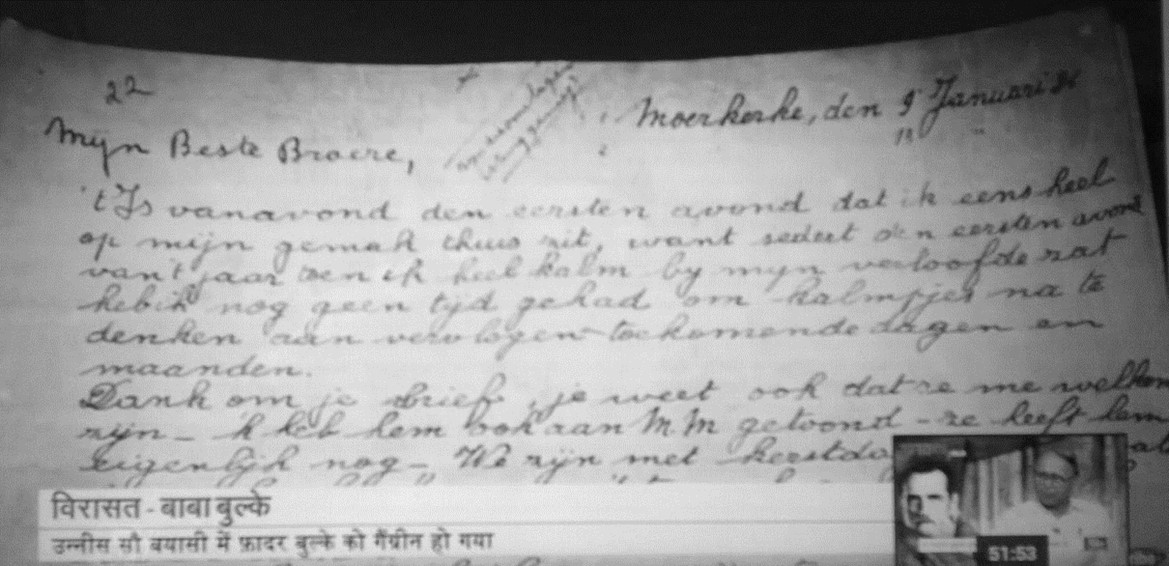 22
Moerkerke, den 9 Januari 31
Mijn Beste Broere,
't Is vanavond den eersten avond dat ik eens heel
op mijn gemak thuis zit, want sedert den eersten avond
van't jaar toen ik heel kalm by mijn verloofde zat
heb ik nog geen tijd gehad om kalmpjes na te
denken aan vervlogen toekomende dagen en
maanden.
Dank om je brief, je weet ook dat ze me welkom
zijn - 'k heb hem ook aan M M getoond - ze heeft hem
eigenlijk nog - We zijn met
विरासत - बाबा बुल्के
उन्नीस सौ बयासी में फ़ादर बुल्के को गैंग्रीन हो गया
51:53